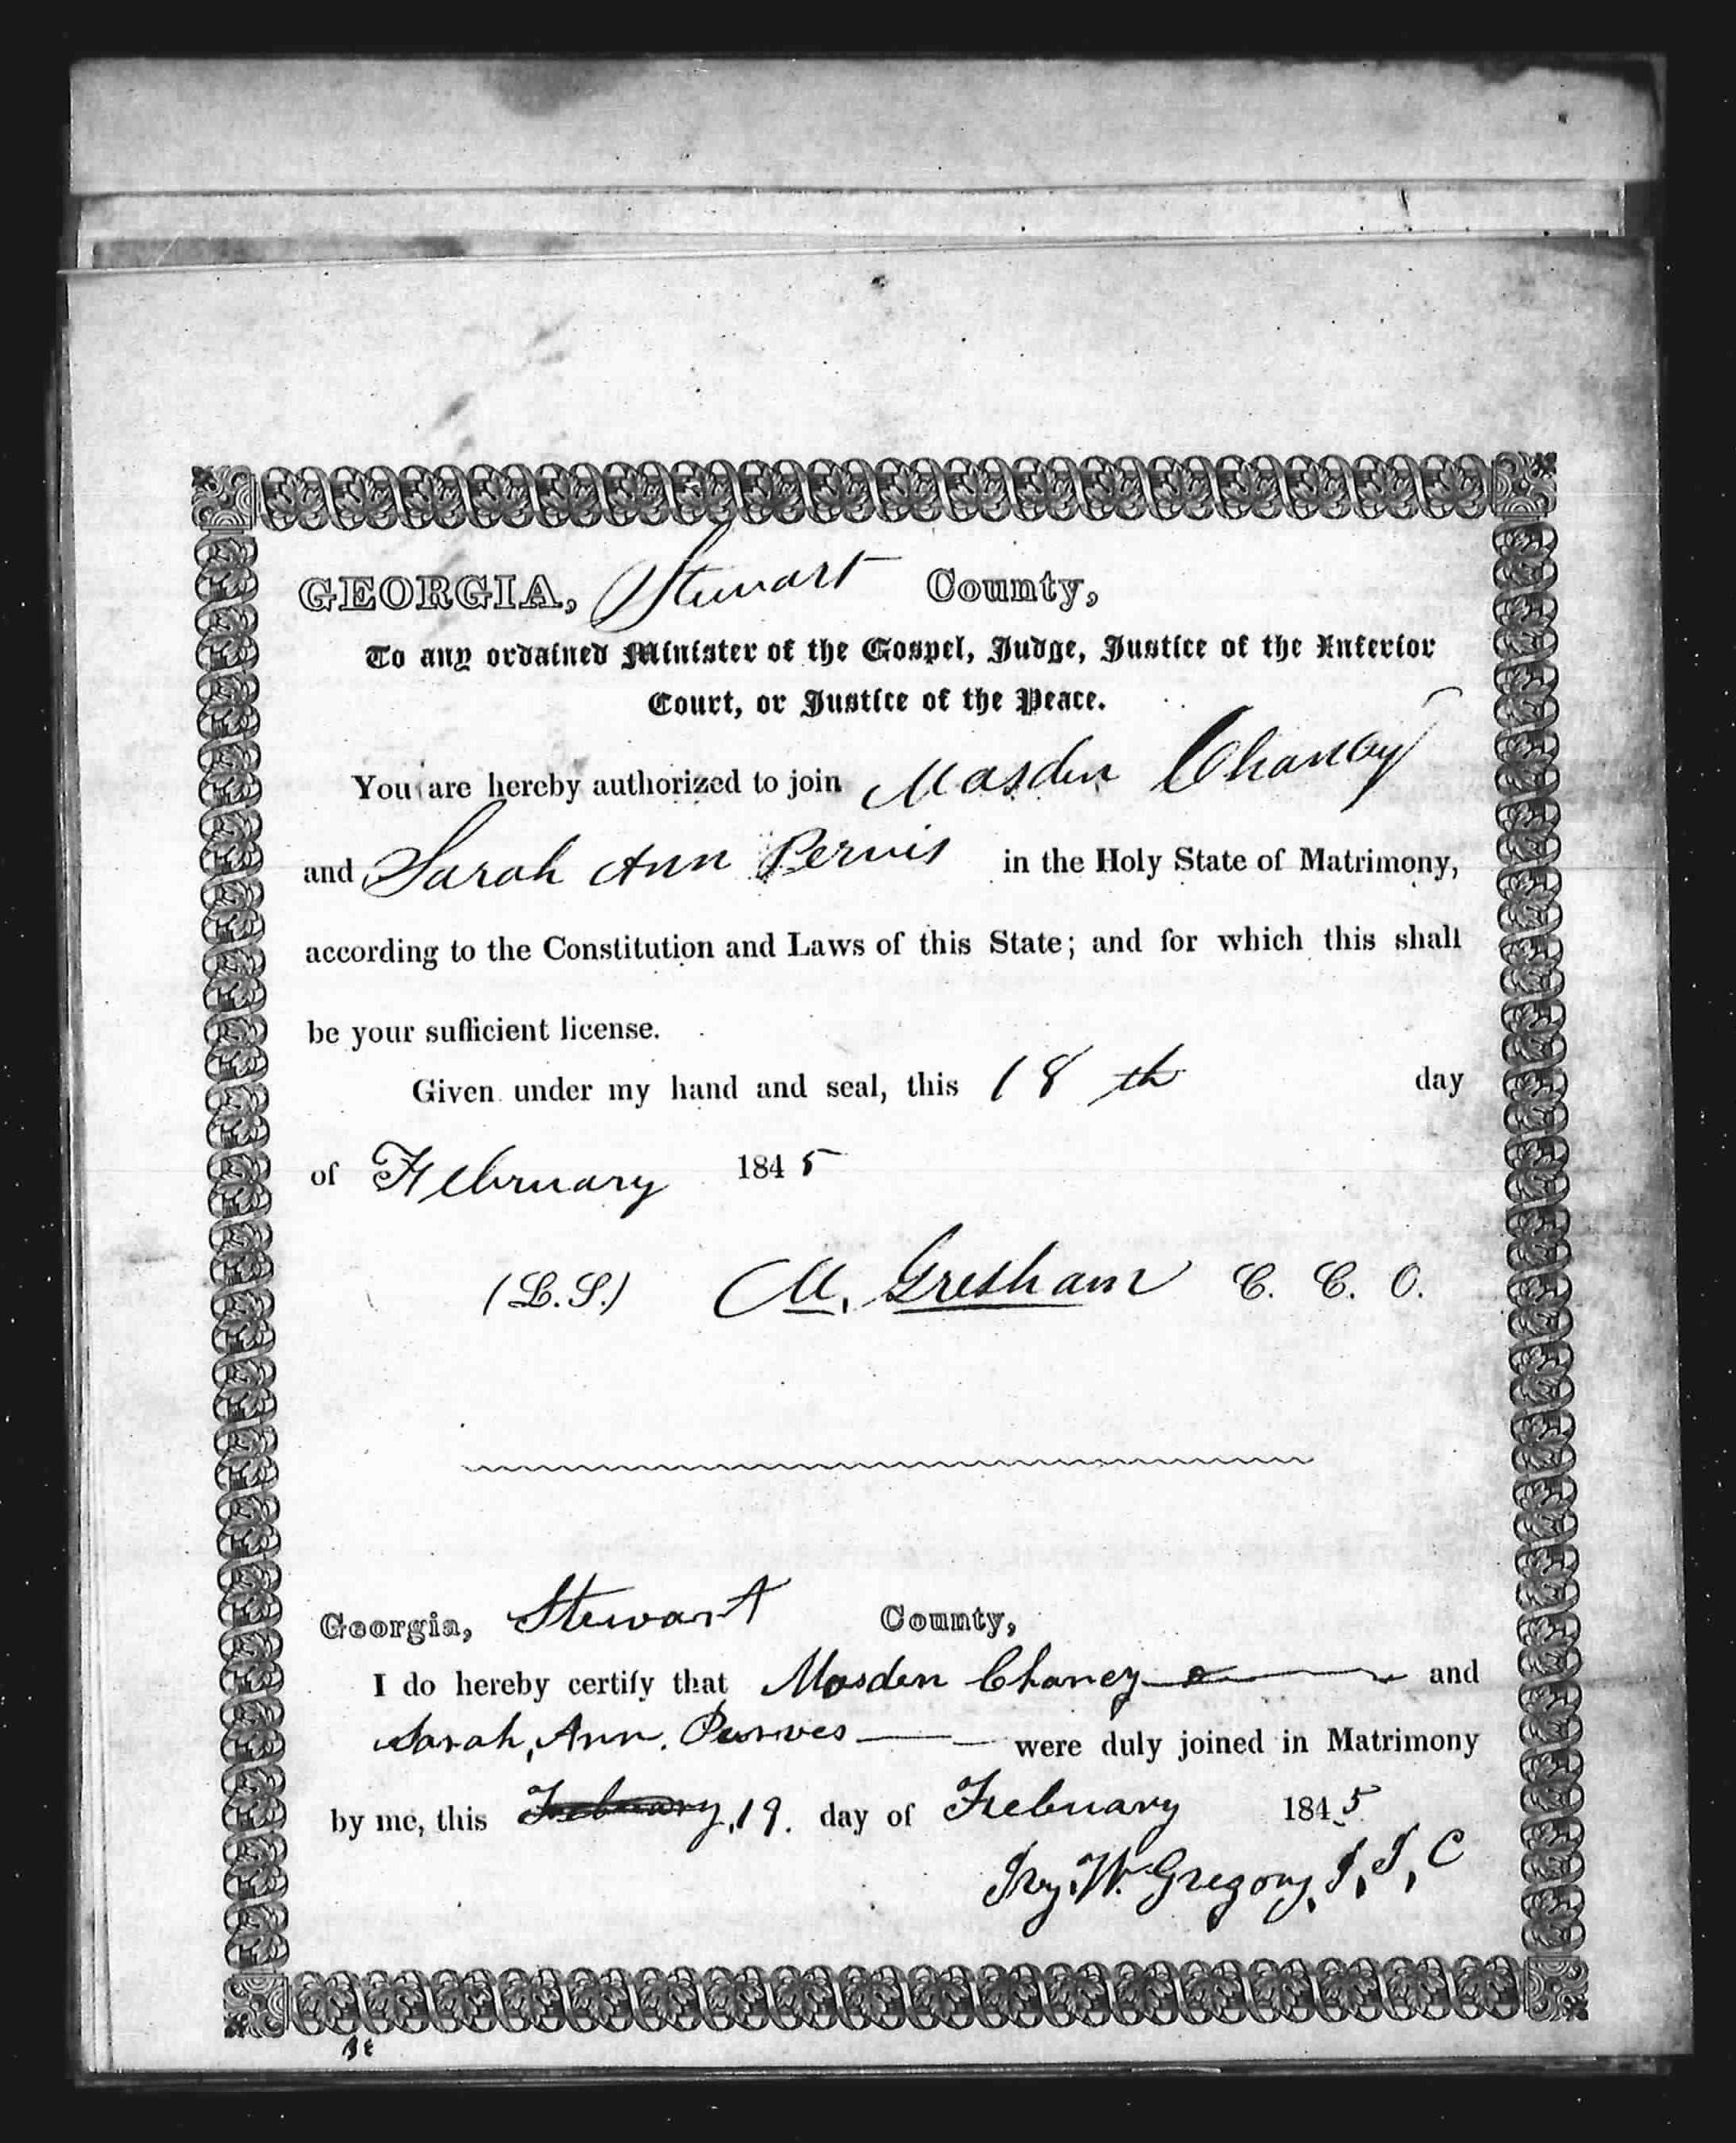 GEORGIA, Stewart County,
To any ordained Minister of the Gospel, Judge, Justice of the Inferior
Court, or Justice of the Peace.
You are hereby authorized to join Masden Chaney
and Sarah Ann Pervis in the Holy State of Matrimony,
according to the Constitution and Laws of this State; and for which this shall
be your sufficient license.
Given under my hand and seal, this 18th day
of February 1845
(L.S.) M. Gresham C. C. O.
Georgia, Stewart County,
I do hereby certify that Masden Chaney and
Sarah, Ann. Purves were duly joined in Matrimony
by me, this February, 19. day of February 1845
W. Gregory, J, I, C